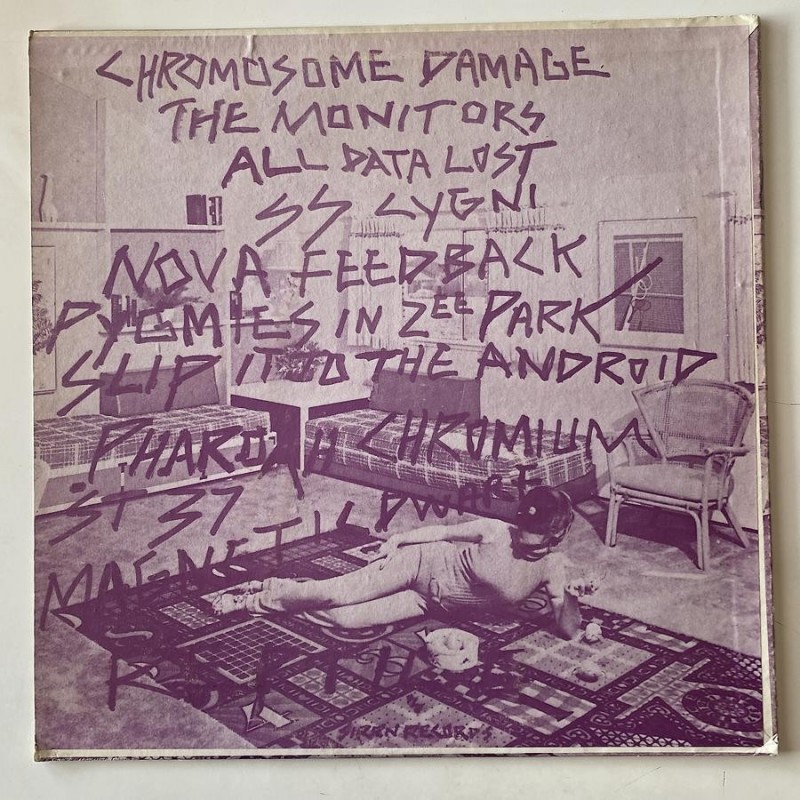 CHROMOSOME DAMAGE
THE MONITORS
ALL DATA LOST
SS CYGNI
NOVA FEEDBACK
PYGMIES IN ZEE PARK
SLIP IT TO THE ANDROID
PHAROAH CHROMIUM
ST 37
MAGNETIC DWARF
SIREN RECORDS